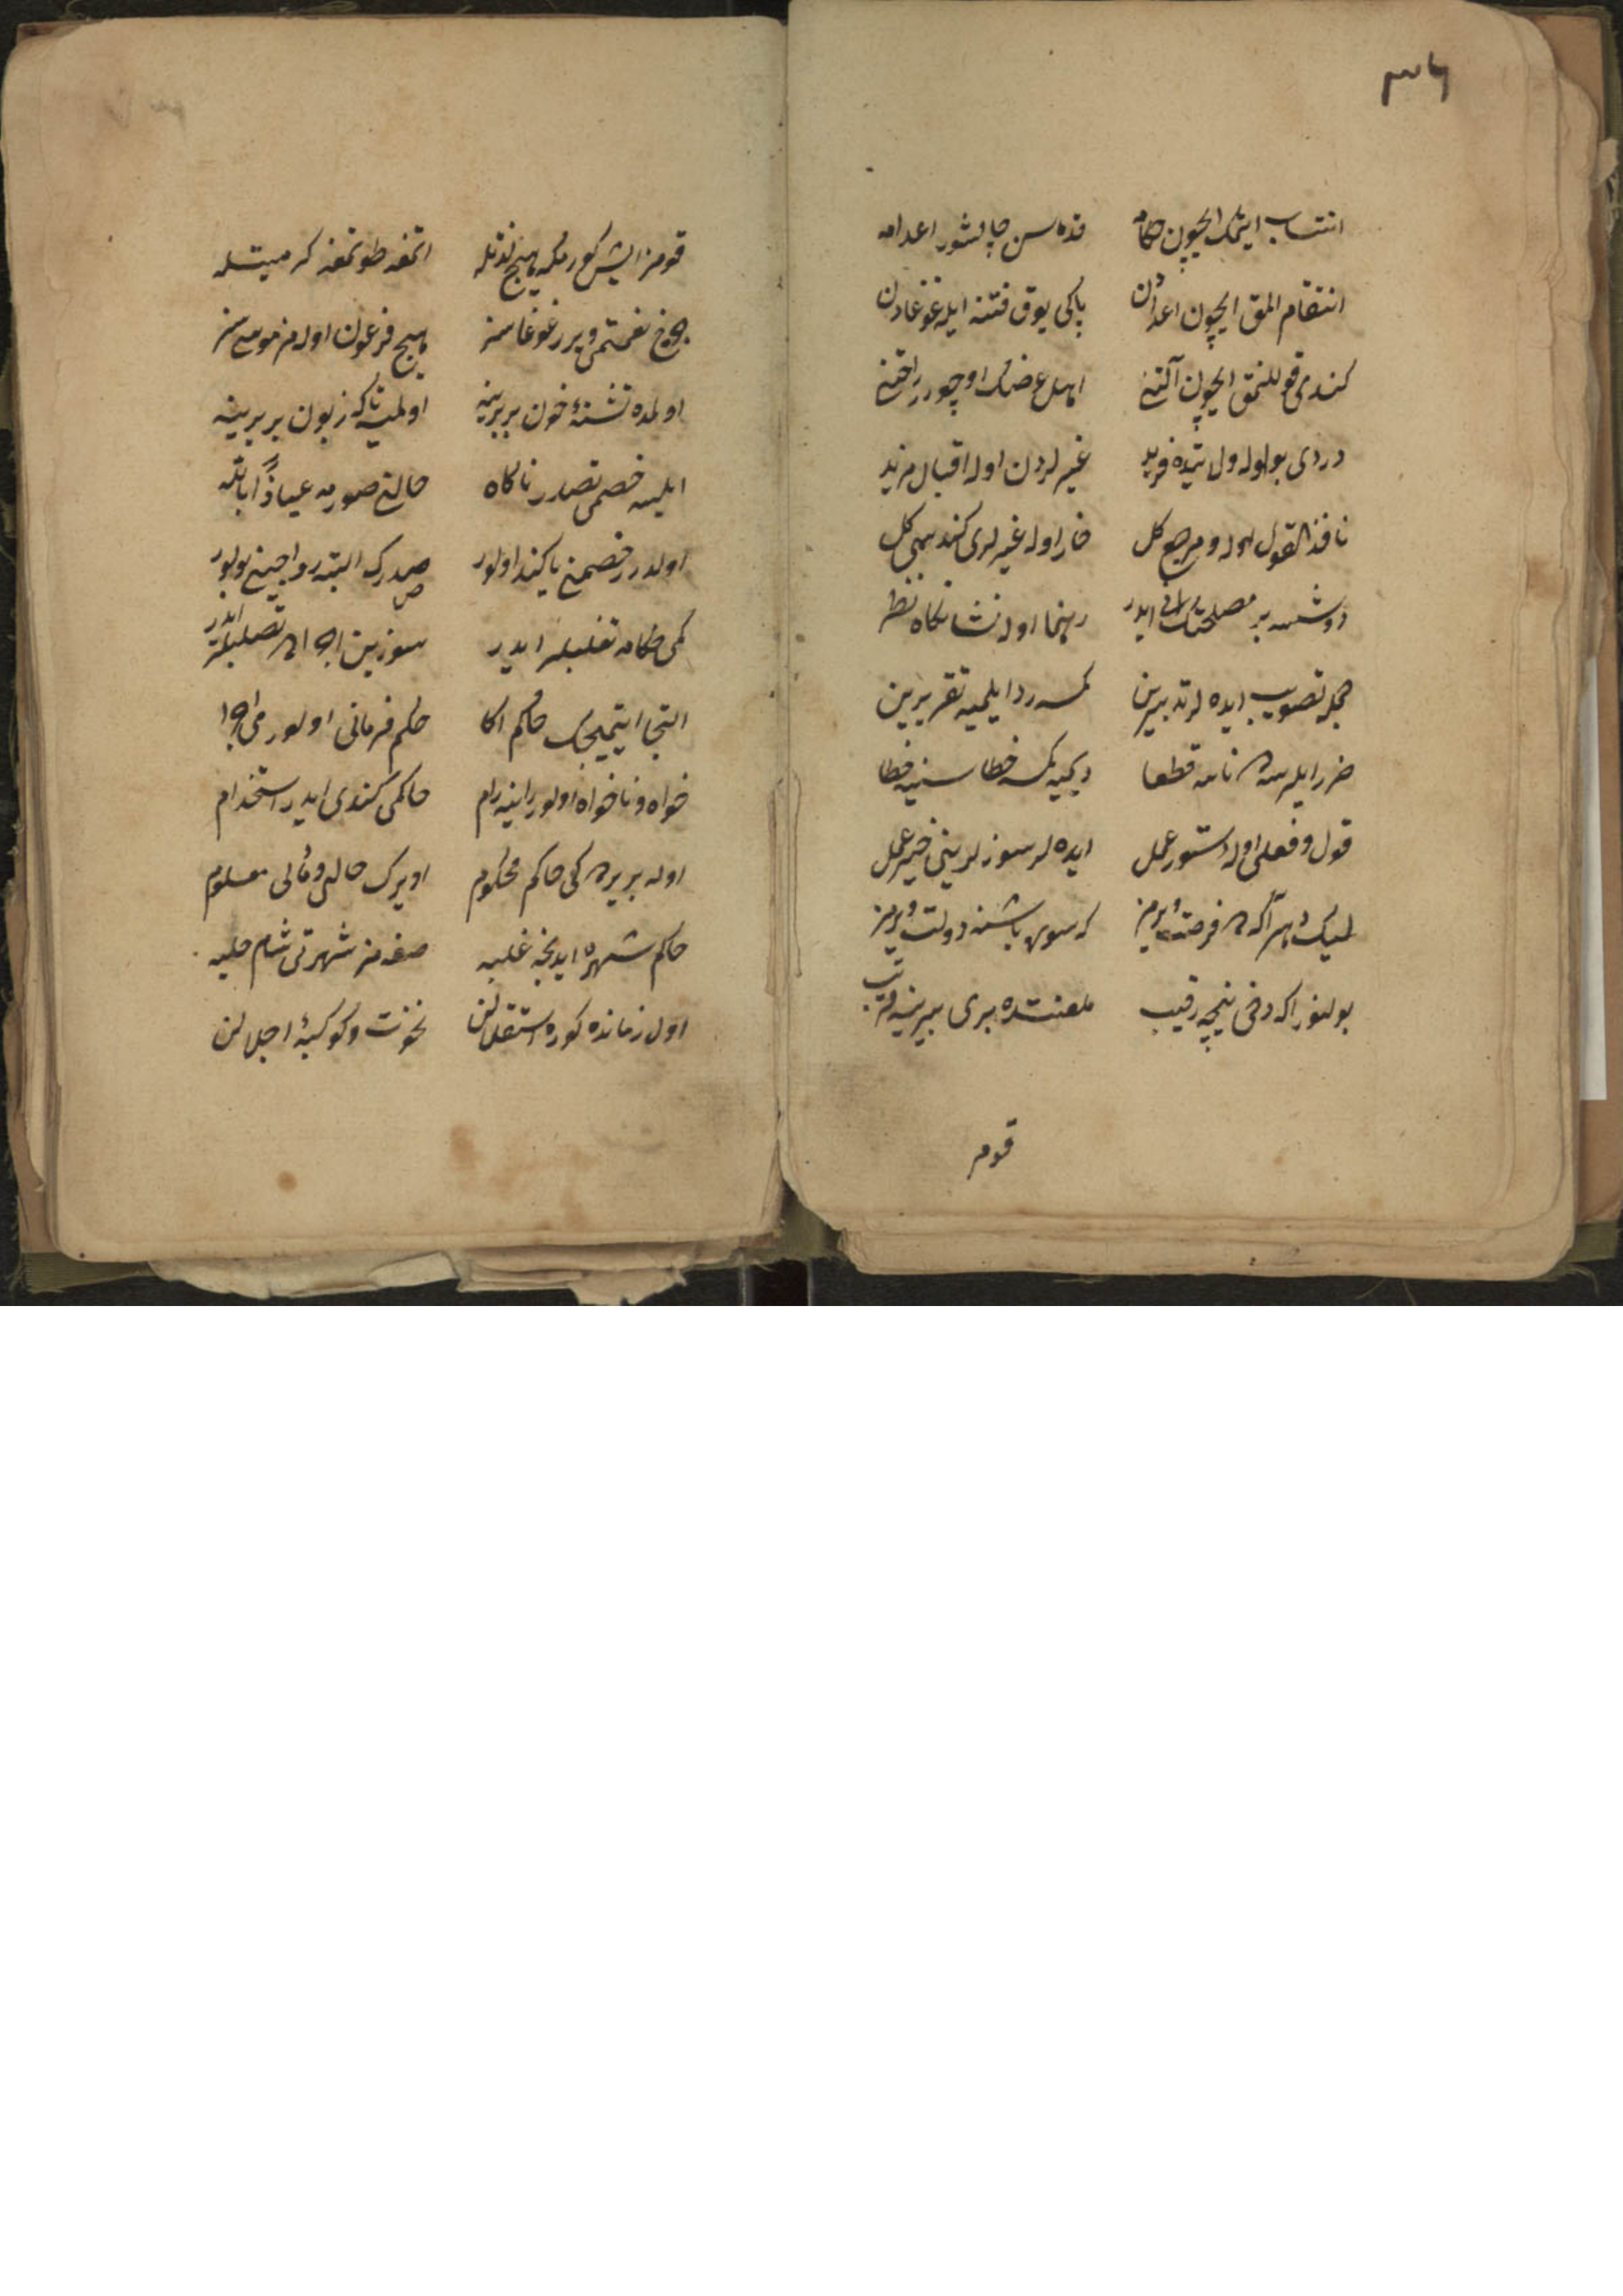 انتساب ایتمك ایچون حكامه قنده سن چالشور اعدامه
انتقام المق ایچون اعدادن باكی یوق فتنه ایله غوغادن
كندی قوللنمق ایچون آلتنی اهل عرضك اوچورر راحتنی
دردی بو اوله اول بلده فرید غیرلردن اوله اقبال مزید
نافذ القول اوله و مرجع كل خار اوله غیرلری كندیسی كل
دوشسه بر مصلحتك ایدر رهنما اوله نشانكاه نظر
جمله تصویب ایده لر تدبیرین كمسه رد ایلمیه تقریرین
ضرر ایلرسه ده ناسه قطعا دیمیه كمسه خطاسینه خطا
قول و فعلی اوله دستور عمل ایده لر سوزلرینی خیر عمل
لیك دهر آكه ده فرصت ویرمز كه سوری باشنه دولت ویرمز
بولنور اكه دخی نیچه رقیب ملعنتده بری بیرینه قریب
قومز
قومز ایش كورمكه هیچ لذتله اتمغه طوتمغه كرمیتله
چرخ نعمتمی ویرر غوغاسز هیچ فرعون اوله مز موسی سز
اولمده تشنهٔ خون بربرینه اولمیه تاكه زبون بربرینه
ایلسه خصمی تصدر ناكاه حالنی صورمه عیاذا بالله
اولدرر خصمنی یا كند اولور صدرك البته رواجینی بولور
كمی حكامه تغلبلر ایدر سوزین اجراده تصلبلر ایدر
التجا ایتمیجك حاكم اكا حكم فرمانی اولور می اجرا
خواه و ناخواه اولور راینه رام حاكمی كندی ایدر استخدام
اوله بر یرده كی حاكم محكوم او یرك حالی و مالی معلوم
حاكم شهره ایدنجه غلبه صغمز شهرتی شام حلبه
اول زمانده كوره استقلالن نخوت و كوكبهٔ اجلالن